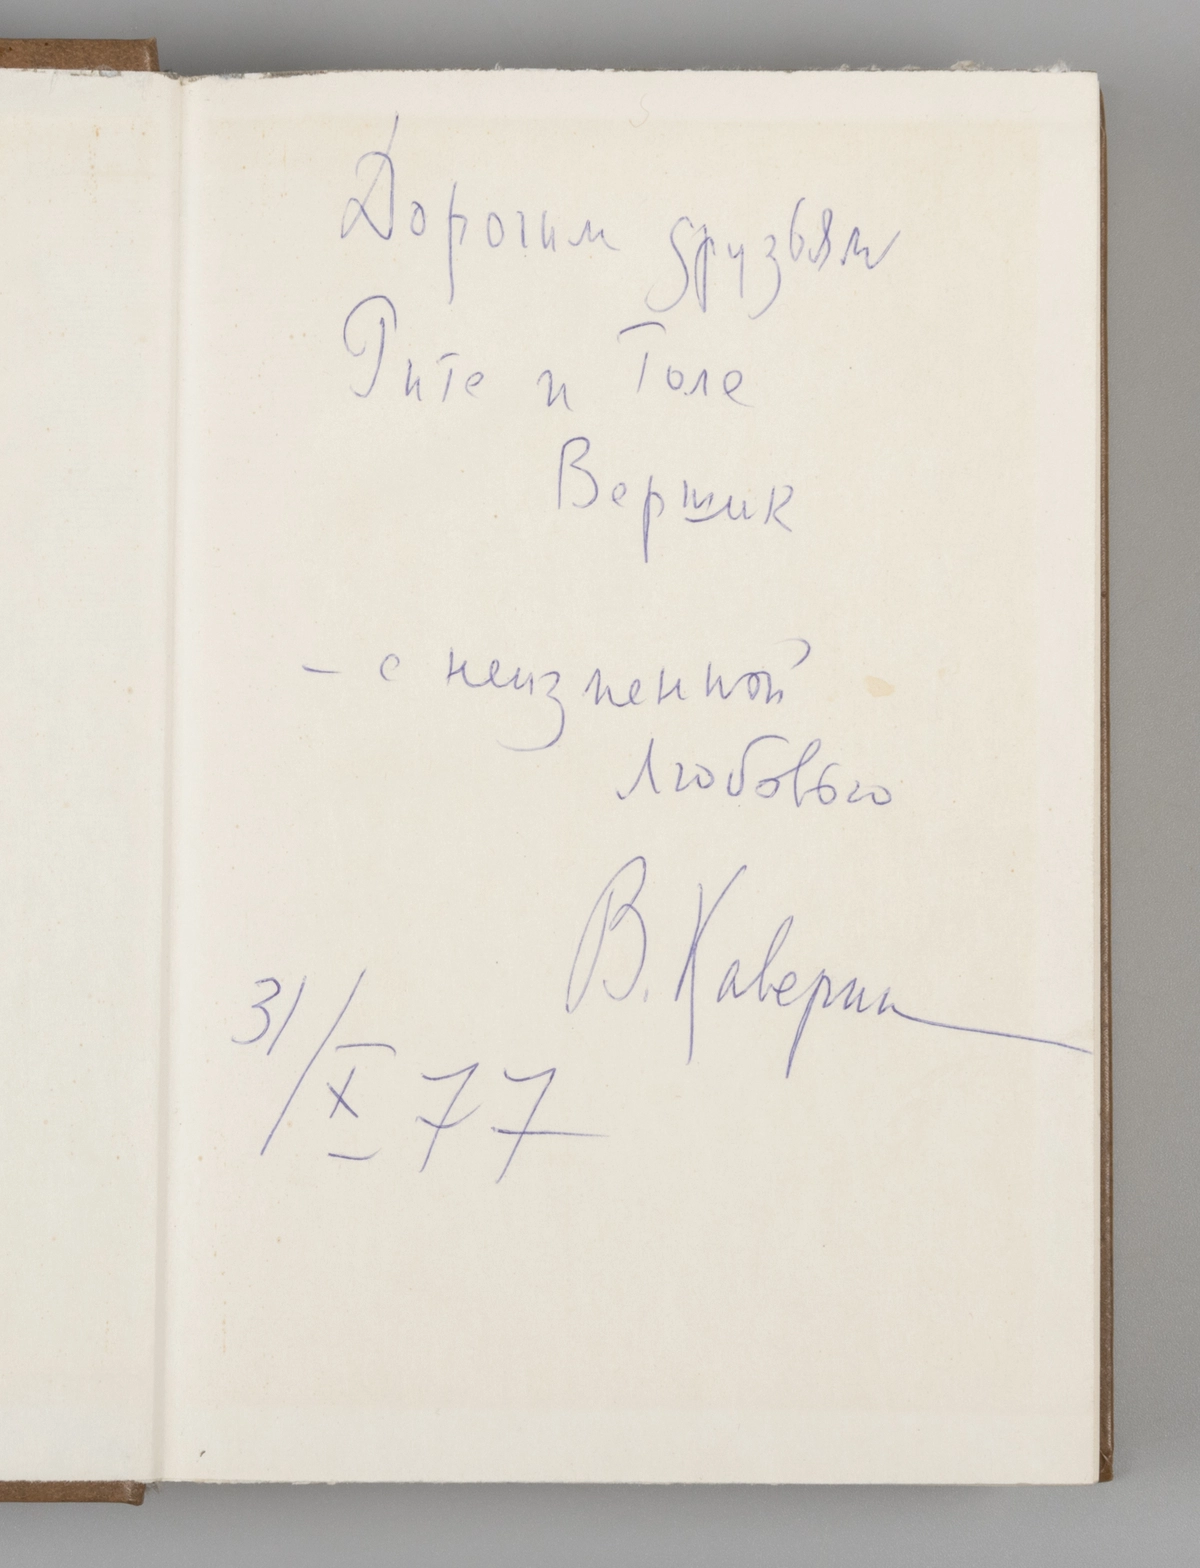 Дорогим друзьям
Рите и Толе
Вершик
– с неизменной
любовью
В. Каверин
31/X 77